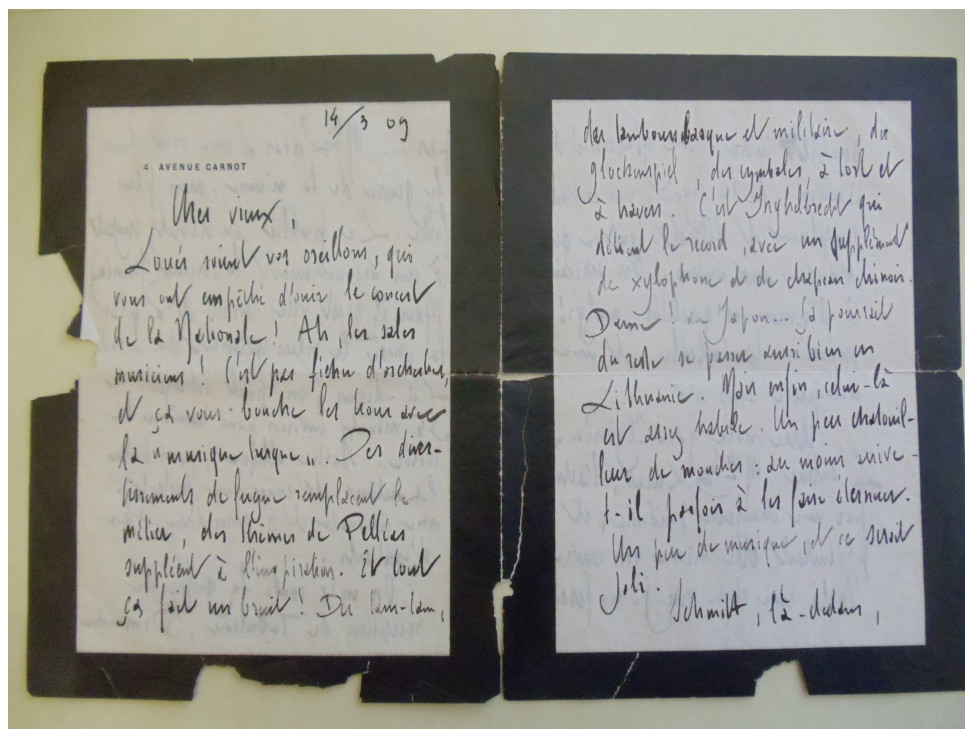 14/3 09
4 AVENUE CARNOT
Cher vieux
Loués soient vos oreillons, qui
vous ont empêché d'ouir le concert
de la Nationale ! Ah, les sales
musiciens ! C'est pas fichu d'orchestrer,
et ça vous bouche les trous avec
la "musique turque". Des diver-
tissements de fugue remplacent le
métier, des thèmes de Pelléas
suppléent à l'inspiration. Et tout
ça fait un bruit ! Du tam-tam,
des tambours basque et militaire, du
glockenspiel, des cymbales, à tort et
à travers. C'est Inghelbrecht qui
détient le record, avec un supplément
de xylophone et de chapeau chinois.
Dame ! au Japon... Ça pourrait
du reste se passer aussi bien en
Lithuanie. Mais enfin, celui-là
est assez habile. Un peu chatouil-
leur de mouches : au moins arrive-
t-il parfois à les faire éternuer.
Un peu de musique, et ce serait
joli.
Schmitt, là-dedans,